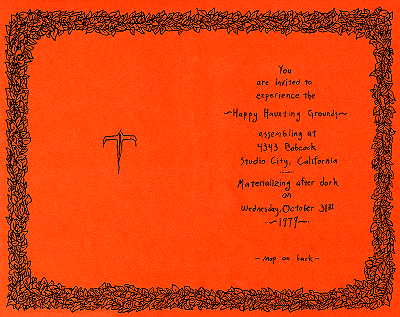 You
are Invited to
experience the
~Happy Haunting Grounds~
assembling at
4343 Babcock
Studio City, California
Materializing after dark
on
Wednesday, October 31st
~1979~
- map on back -